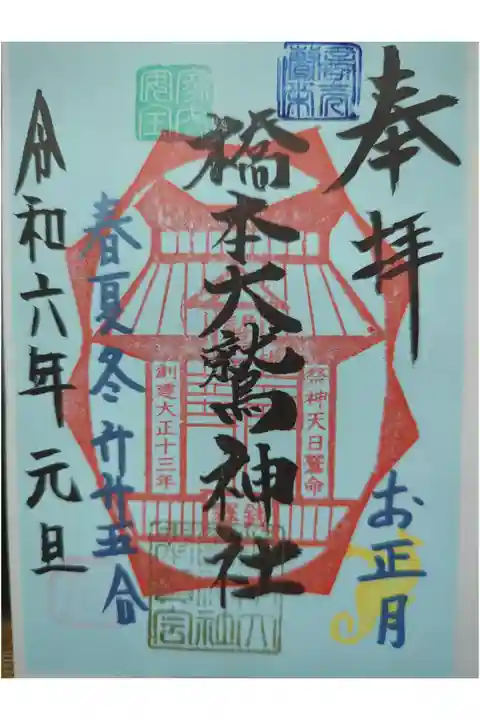 奉拝
お正月
橋本大鷲神社
祭神天日鷲命
創建大正十三年
春夏冬廾廿五合
令和六年元旦